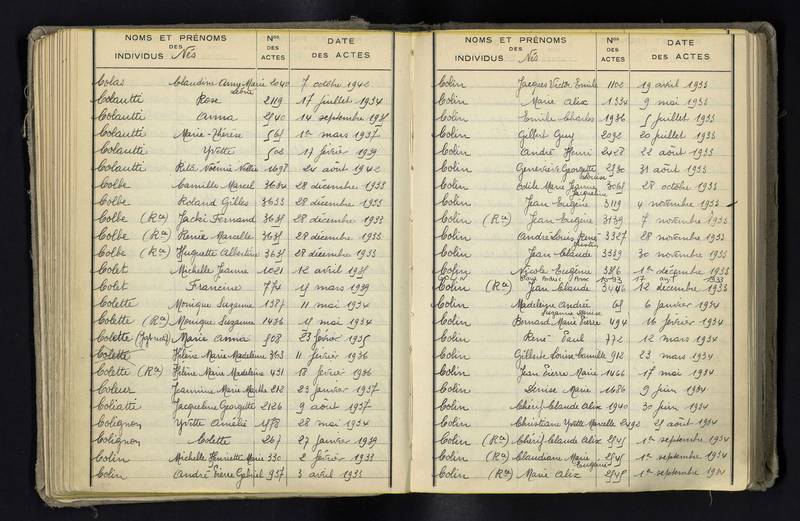 NOMS ET PRÉNOMS
DES
INDIVIDUS Nés
Nos
DES
ACTES
DATE
DES ACTES
Colas Claudine Anny Marie 2040 7 octobre 1942
Colautti Rose 2119 17 juillet 1934
Colautti Anna 2540 14 septembre 1935
Colautti Marie-Thérèse 561 1er mars 1937
Colautti Yvette 502 17 février 1939
Colautti Rita 1698 24 août 1942
Colbe Camille Marcel 3634 28 décembre 1933
Colbe Roland Gilles 3633 28 décembre 1933
Colbe (Ron) Jacki Fernand 28 décembre 1933
Colbe (Ron) Renée Marcelle 28 décembre 1933
Colbe (Ron) Huguette Albertine 28 décembre 1933
Colet Michelle Jeanne 1021 12 avril 1935
Colet Francine 774 15 mars 1939
Colette Monique Suzanne 1387 11 mai 1934
Colette (Ron) Monique Suzanne 1436 15 mai 1934
Colette Marie Anna 508 23 février 1935
Colette Hélène Marie Madeleine 363 11 février 1936
Colette (Ron) Hélène Marie Madeleine 431 18 février 1936
Coleur Jeannine Marie Marthe 212 23 janvier 1937
Coliatti Jacqueline Georgette 2126 9 août 1937
Colignon Yvette Amélie 1578 28 mai 1934
Colignon Colette 267 27 janvier 1939
Colin Michelle Henriette Marie 330 2 février 1933
Colin André Pierre Gabriel 957 3 avril 1933
NOMS ET PRÉNOMS
DES
INDIVIDUS Nés
Nos
DES
ACTES
DATE
DES ACTES
Colin Jacques Victor Emile 1102 19 avril 1933
Colin Marie Alix 1334 9 mai 1933
Colin Emile Charles 1936 5 juillet 1933
Colin Gilbert Guy 2092 20 juillet 1933
Colin André Henri 2428 22 août 1933
Colin Geneviève Georgette 2530 31 août 1933
Colin Edile Marie Jeanne 3061 28 octobre 1933
Jacqueline
Colin Jean Eugène 3119 4 novembre 1933
Colin (Ron) Jean Eugène 3139 7 novembre 1933
Colin André Louis René 3327 28 novembre 1933
Colin Jean Claude 3339 30 novembre 1933
Colin Nicole Eugène 3356 1er décembre 1933
Colin (Ron) Jean Claude 3446 12 décembre 1933
Colin Madeleine Andrée 65 6 janvier 1934
Suzanne Denise
Colin Bernard Marie Pierre 494 16 février 1934
Colin René Paul 772 12 mars 1934
Colin Gilberte Louise Camille 912 23 mars 1934
Colin Jean Pierre Marie 1466 17 mai 1934
Colin Denise Marie 1686 9 juin 1934
Colin Chérif Claude Alix 1940 30 juin 1934
Colin Christiane Yvette Marcelle 2492 25 août 1934
Colin (Ron) Chérif Claude Alix 2545 1er septembre 1934
Colin (Ron) Claudiane Marie 2545 1er septembre 1934
Colin (Ron) Marie Alix 2545 1er septembre 1934